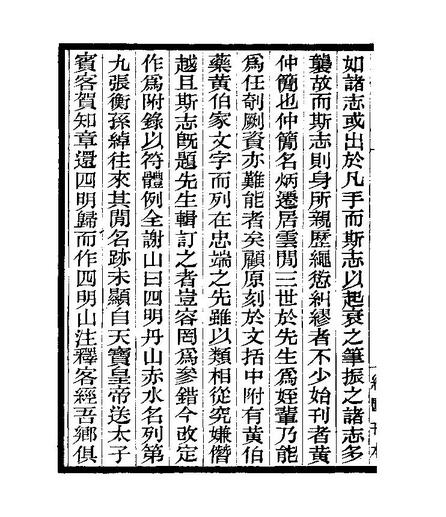 如諸志或出於凡手而斯志以起衰之筆振之諸志多
襲故而斯志則身所親歷繩愆糾繆者不少始刊者黃
仲簡也仲簡名炳遷居雲間三世於先生爲姪輩乃能
爲任剞劂資亦難能者矣顧原刻於文括中附有黃伯
藥黃伯家文字而列在忠端之先雖以類相從究嫌僭
越且斯志既題先生輯訂之者豈容罔爲參錯今改定
作爲附錄以符體例全謝山曰四明丹山赤水名列第
九張衡孫綽往來其閒名跡未顯自天寶皇帝送太子
賓客賀知章還四明歸而作四明山注釋客經吾鄉俱